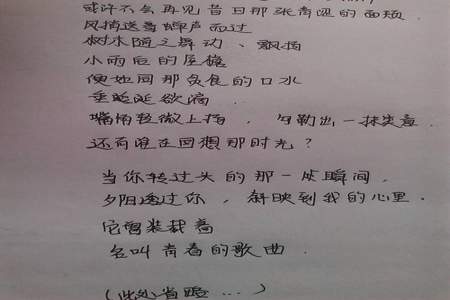 或许不会再见昔日那张青涩的面颊
风捎送着蝉声而过
树木随之舞动、飘扬
小雨后的屋檐
便如同那贪食的口水
垂涎欲滴
嘴角轻微上扬，勾勒出一抹笑意.
还有谁在回想那时光？
当你转过头的那一然瞬间，
夕阳透过你，斜映到我的心里.
它曾装载着
名叫青春的歌曲
(此处省略....)